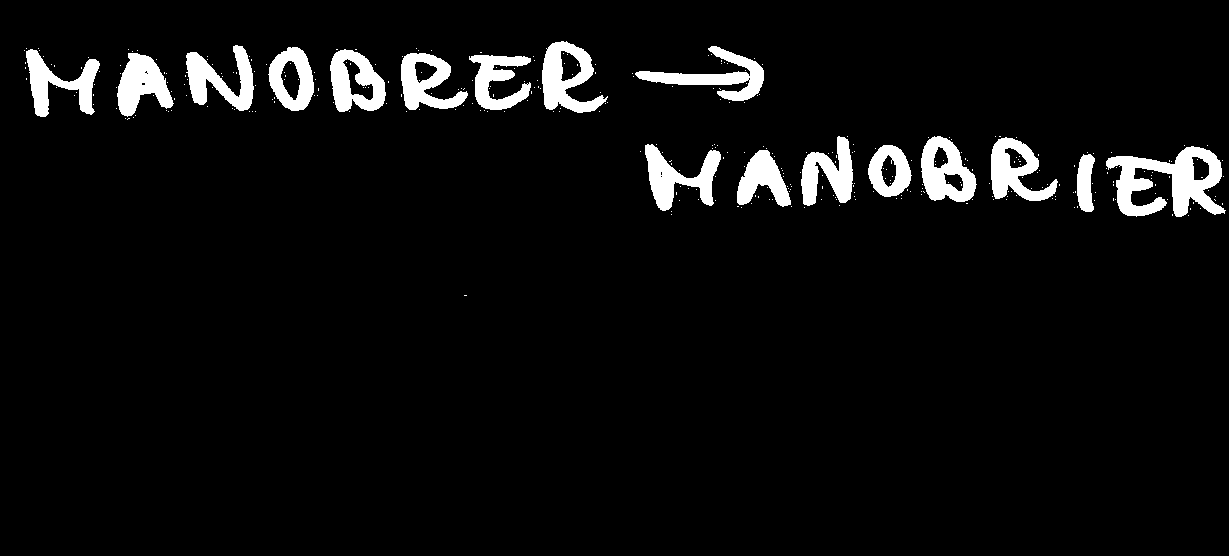 MANOBRER →
MANOBRIER